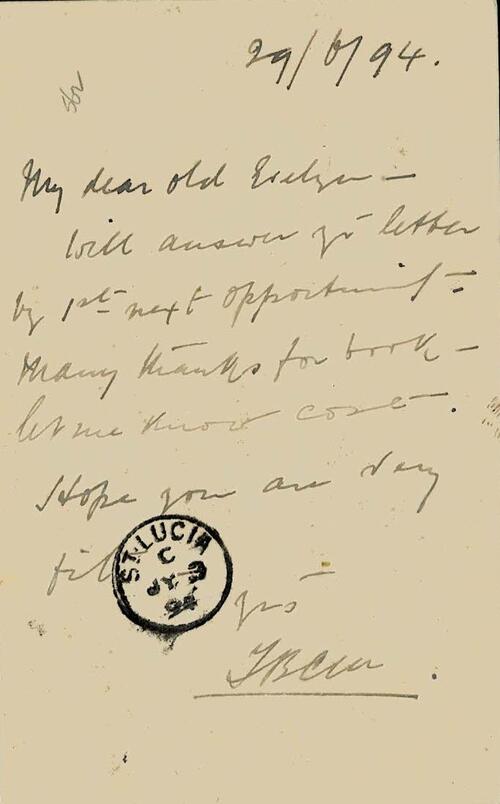 29/6/94.
562
My dear old Evelyn —
Will answer yr letter
by 1st next opportunity.
Many thanks for book —
let me know cost.
Hope you are very
fit
ST. LUCIA
C
JY 3
94
yrs